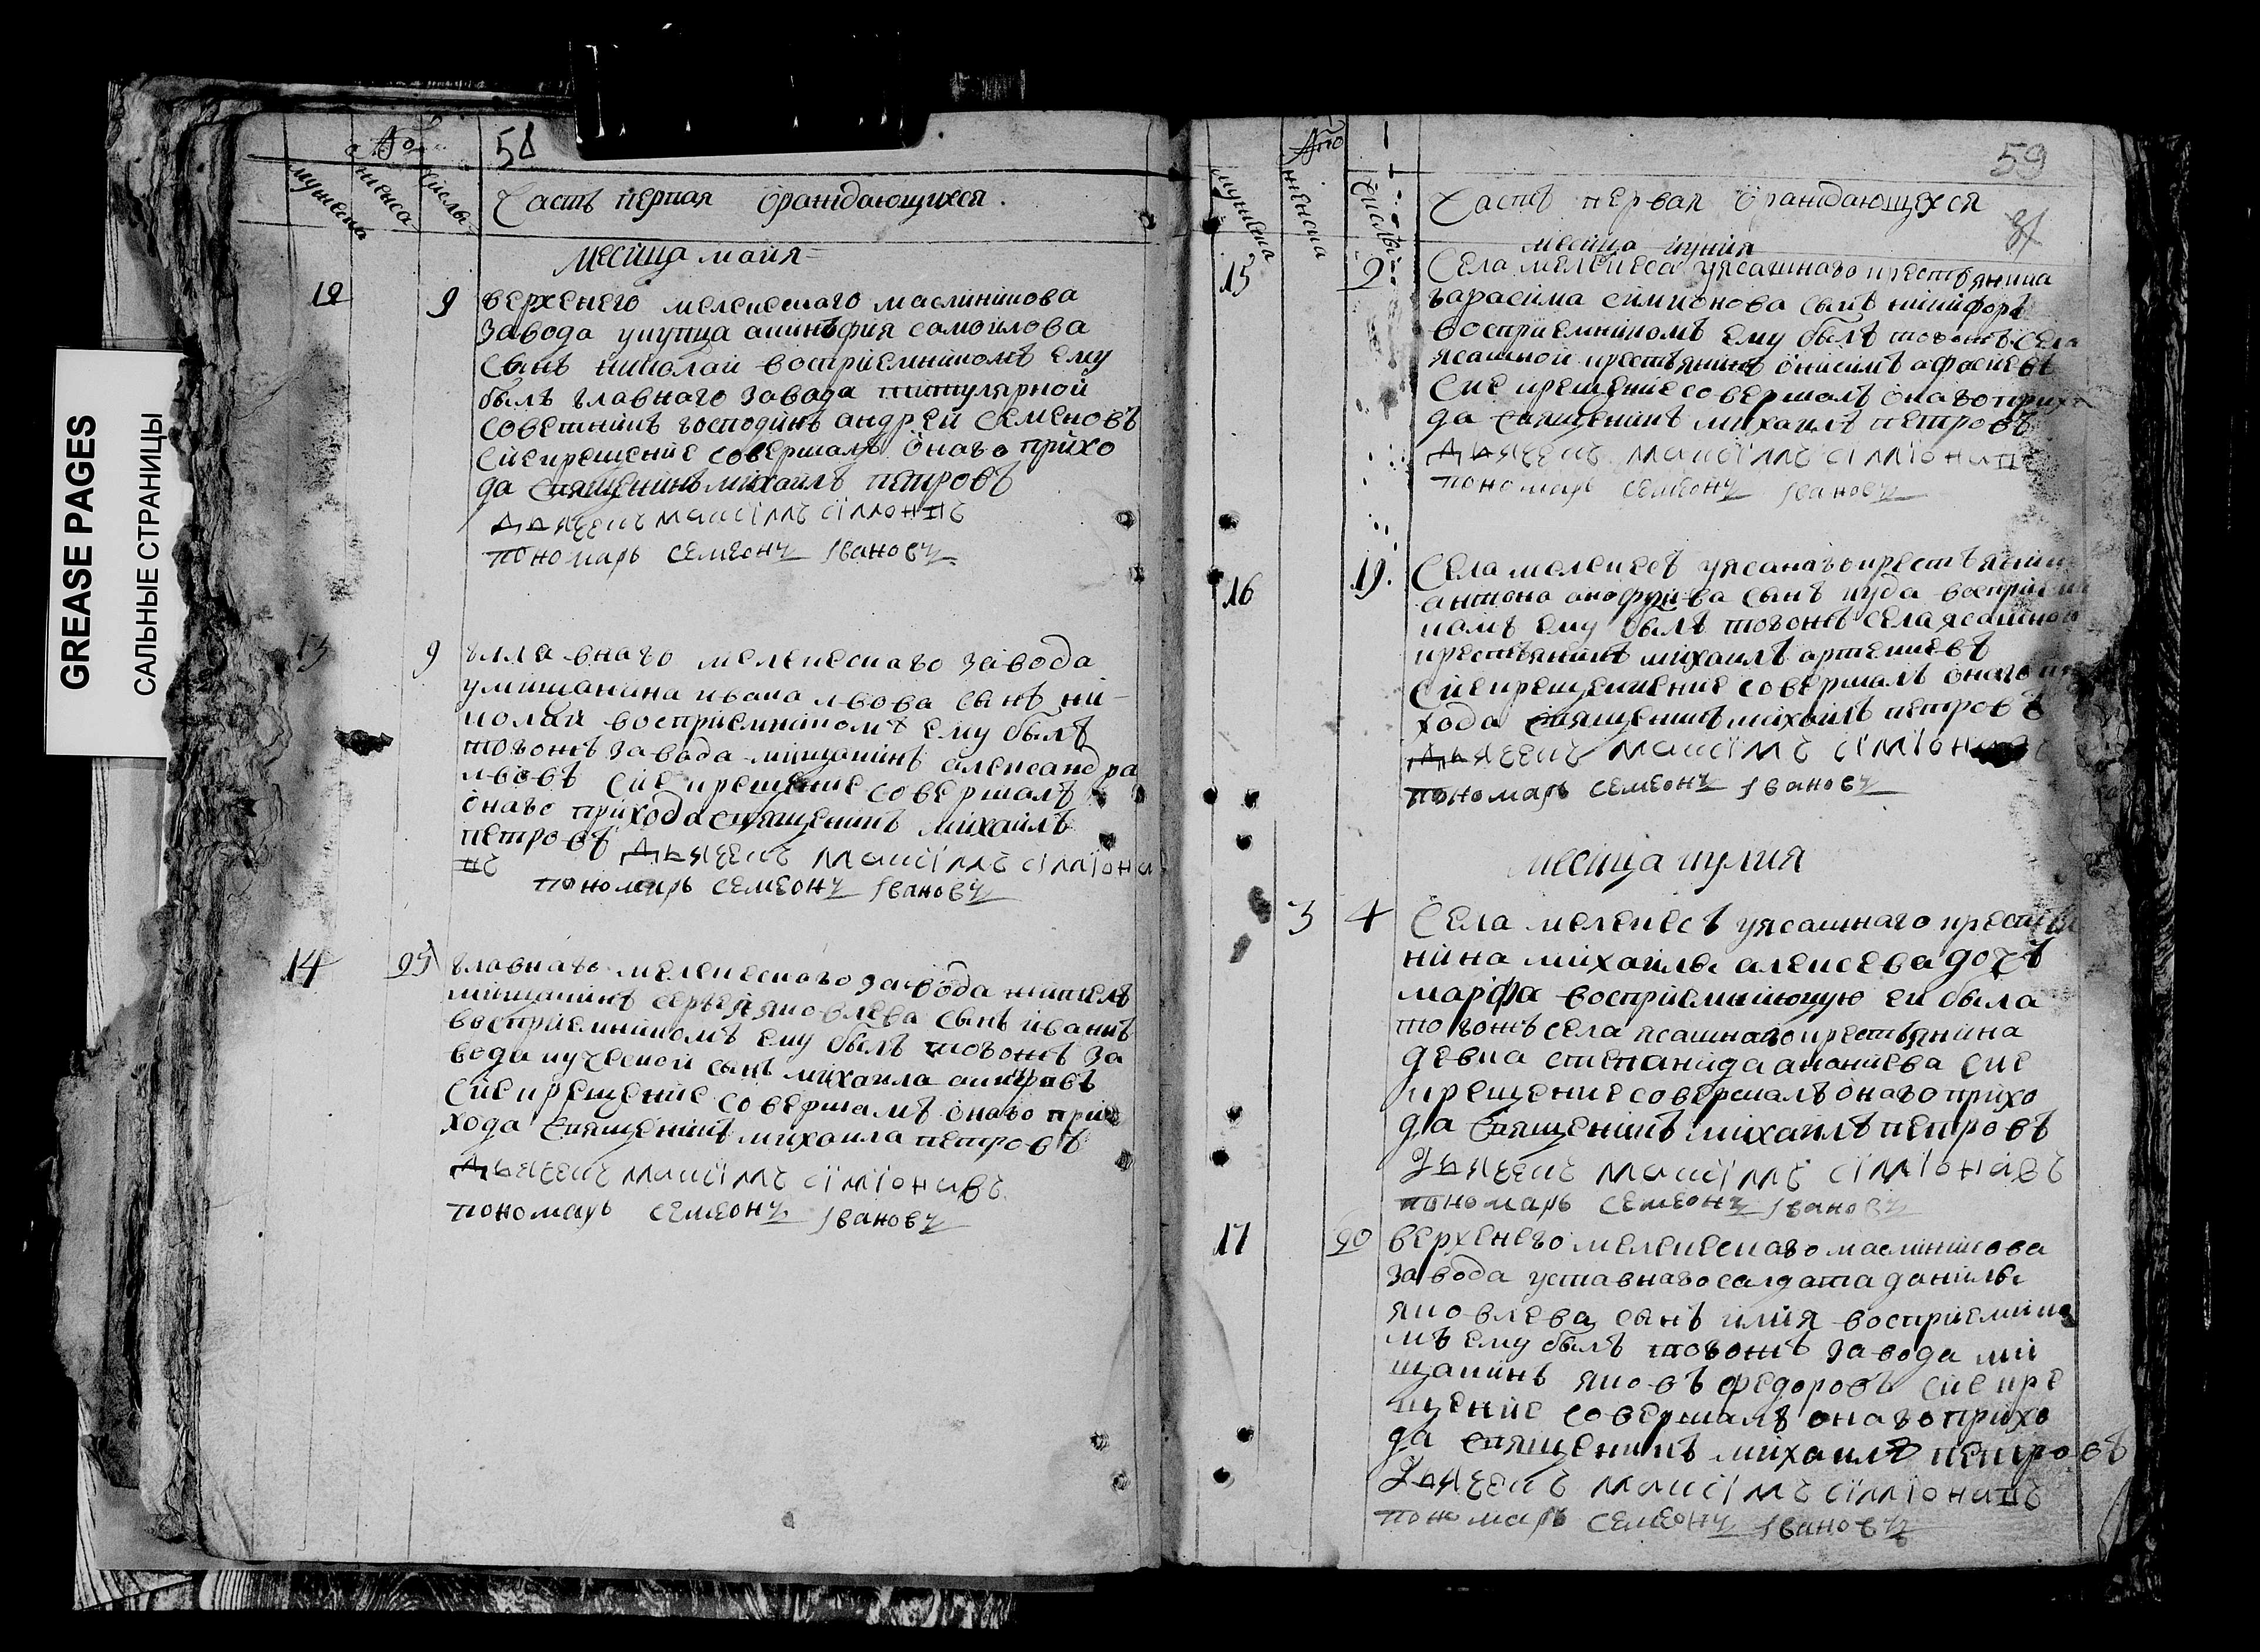 GREASE PAGES
САЛЬНЫЕ СТРАНИЦЫ
58
мужеска женска числы
Часть первая ораждающихся.
месяца майя
12 9 верхенего мелекескаго масленикова
завода у купца акинфия самоилова
сынъ николаи восприемникомъ ему
былъ главнаго завода титулярной
советникъ господинъ андреи семеновъ
сие крещение совершалъ онаго прихо
да священикъ михаилъ петровъ
дьячекъ максімъ сімионовъ
пономарь семеонъ Ивановъ
13 9 главнаго мелекескаго завода
у мищанина ивана львова сынъ ни
колаи восприемникомъ ему былъ
тогожъ завода мищанинъ александра
львовъ сие крещение совершалъ
онаго прихода священикъ михаилъ
петровъ дьячекъ максімъ сіміоно
въ
пономарь семеонъ Ивановъ
14 главнаго мелекескаго завода
мищанинъ яковлева сынъ иванъ
восприемникомъ ему былъ тогожъ за
вода сынъ михаила
сие крещение совершалъ онаго при
хода священикъ михаила петровъ
дьячекъ максімъ сіміоновъ
пономарь семеонъ Ивановъ
59
мужеска женска числы
Часть первая ораждающихся
месяца июния
15 2 Села мелекеса у ясашнаго крестьянина
гарасима симионова сынъ никифоръ
восприемникомъ ему былъ тогожъ села
ясашной крестьянинъ онисимъ
сие крещение совершалъ онаго прихо
да священикъ михаилъ петровъ
дьячекъ максімъ сіміоновъ
пономарь семеонъ Ивановъ
16 19. Села мелекесъ у ясанаго крестьянин
антона сынъ иуда восприемни
комъ ему былъ тогожъ села ясашной
крестьянинъ михаилъ артемиевъ
сие совершалъ онаго при
хода священикъ михаилъ петровъ
дьячекъ максімъ сіміон
пономарь семеонъ Ивановъ
месяца иулия
3 4 Села мелекесъ у ясашнаго крестья
нина михаилы алексева дочъ
марфа восприемникою еи была
тогожъ села ясашнаго крестьянина
девка степанида ананиева сие
крещение совершалъ онаго прихо
да священикъ михаилъ петровъ
Дьячекъ максімъ сіміоновъ
пономарь семеонъ Ивановъ
17 верхенего мелекескаго масленикова
завода у ставнаго салдата данилы
яковлева сынъ илия восприемнико
мъ ему былъ тогожъ завода ми
щанинъ яковъ федоровъ сие кре
щение совершалъ онаго прихо
да священикъ михаилъ петровъ
Дьячекъ максімъ сіміоновъ
пономарь семеонъ Ивановъ